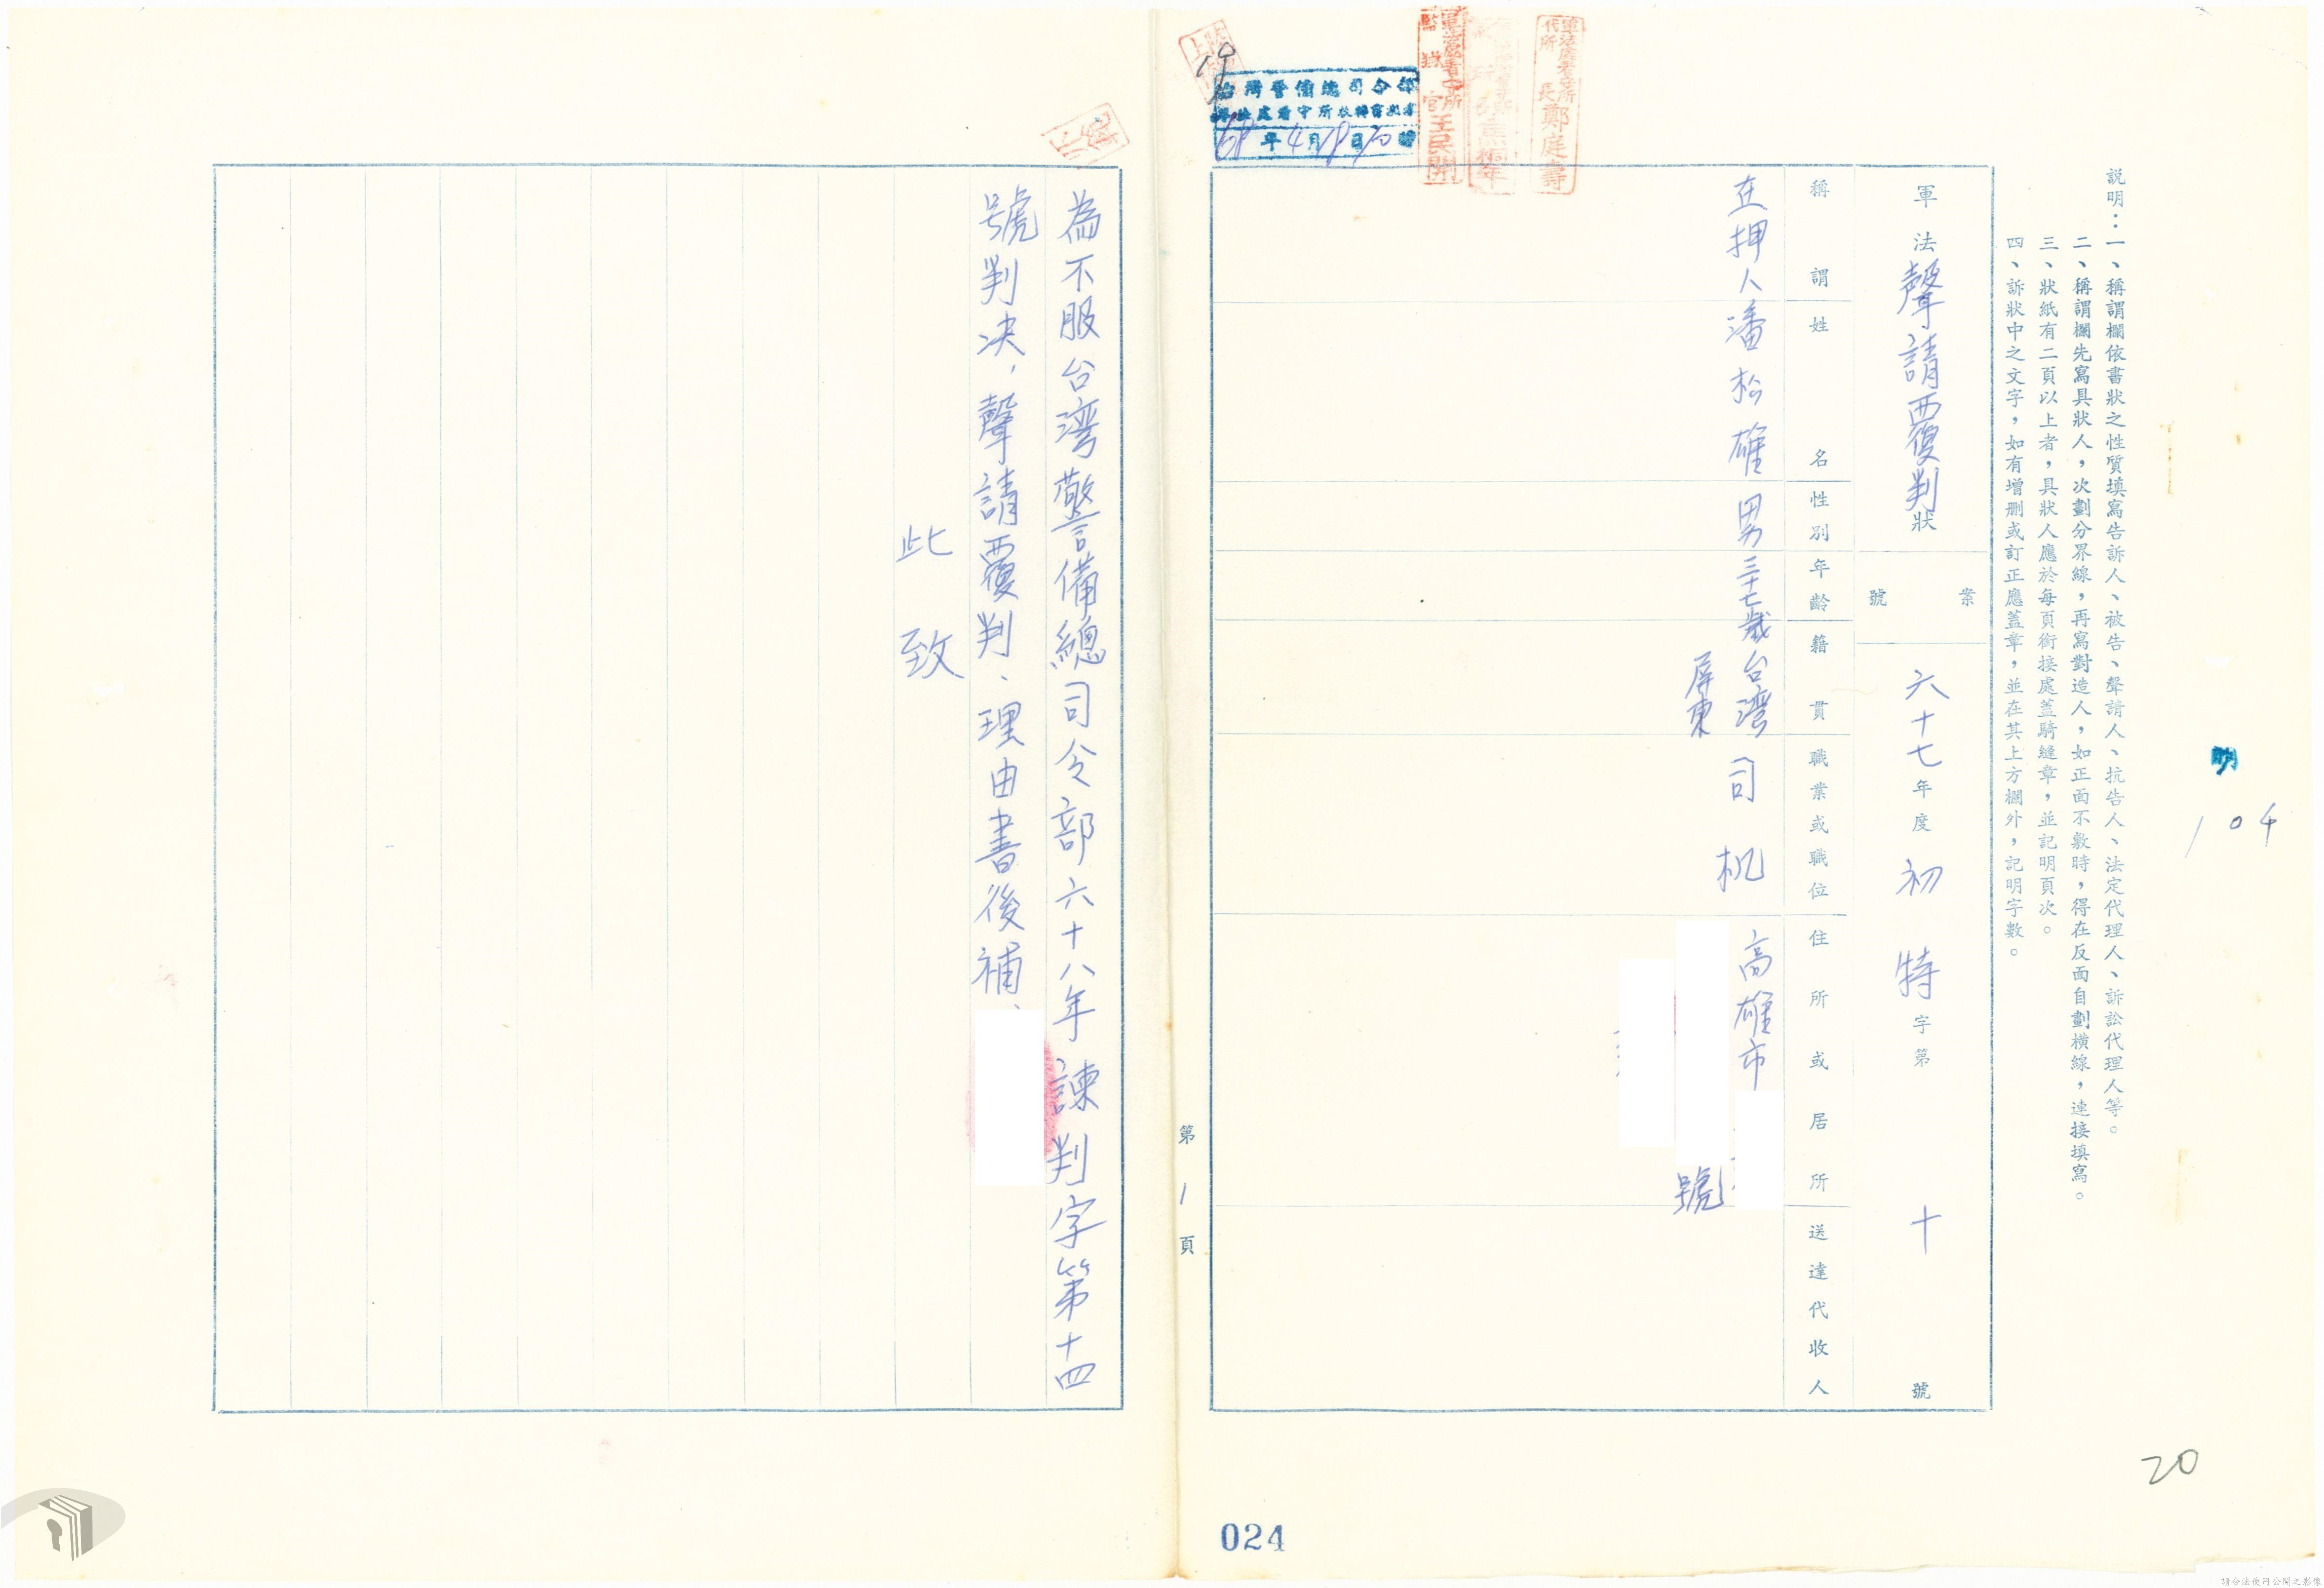 說明：一、稱謂欄依書狀之性質填寫告訴人、被告、聲請人、抗告人、法定代理人、訴訟代理人等。
二、稱謂欄先寫具狀人，次劃分界線，再寫對造人，如正面不敷時，得在反面自劃橫線，連接填寫。
三、狀紙有二頁以上者，具狀人應於每頁銜接處蓋騎縫章，並記明頁次。
四、訴狀中之文字，如有增刪或訂正應蓋章，並在其上方欄外，記明字數。
104
軍法聲請覆判狀
案號
六十七年度初特字第十號
稱謂
姓名
性別
年齡
籍貫
職業或職位
住所或居所
送達代收人
在押人
潘松雄
男
三十七歲
台灣
屏東
司机
高雄市
號
軍法處看守所
代所長鄭庭壽
監獄官王民開
台灣警備總司令部
68年4月19日10時
19
第1頁
為不服台湾警備總司令部六十八年諫判字第十四
號判决，聲請覆判、理由書後補、
此致
20
024
請合法使用公開之影像